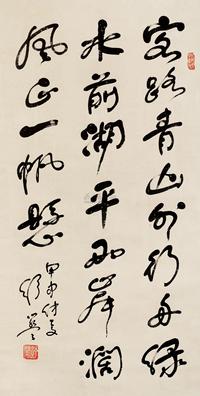 客路青山外行舟绿
水前潮平两岸阔
风正一帆悬
甲申仲夏